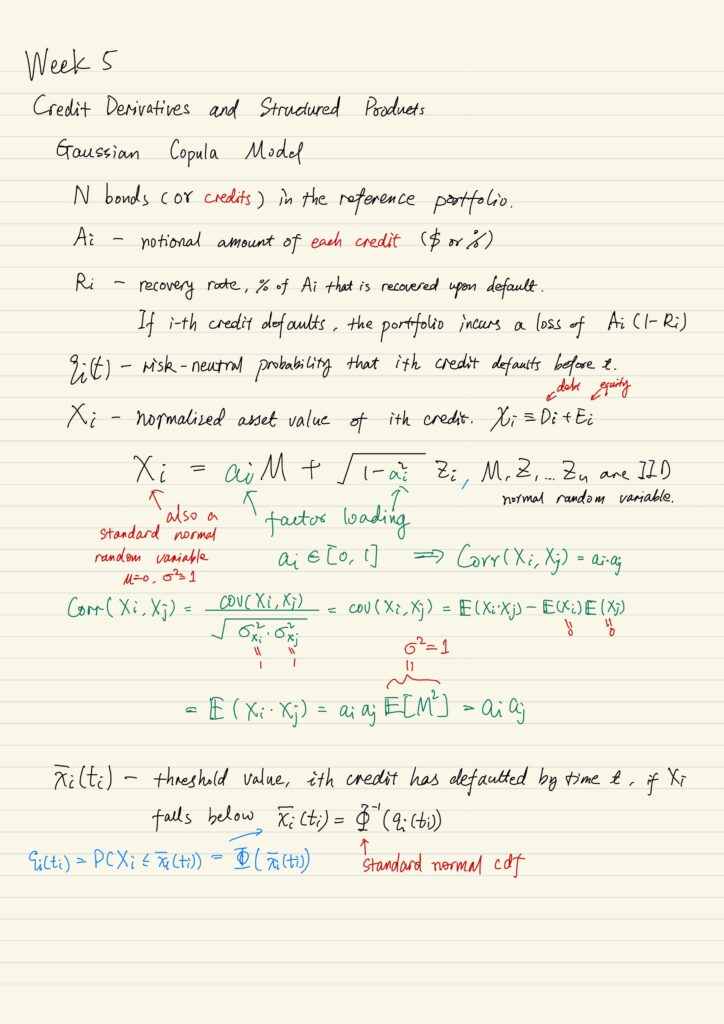 Week 5
Credit Derivatives and Structured Products
Gaussian Copula Model
N bonds (or credits) in the reference portfolio.
Ai – notional amount of each credit ($ or %)
Ri – recovery rate, % of Ai that is recovered upon default.
If i-th credit defaults, the portfolio incurs a loss of Ai (1-Ri)
qi(t) – risk-neutral probability that ith credit defaults before t.
debt equity
Xi – normalized asset value of ith credit. Xi ≡ Di + Ei
Xi = ai M + √(1-ai²) Zi, M, Z, ... Zn are IID
normal random variable.
also a
standard normal
random variable
μ=0, σ²=1
factor loading
ai ∈ [0, 1] ⟹ Corr(Xi, Xj) = ai·aj
Corr(Xi, Xj) = cov(Xi, Xj) / √(σ²xi · σ²xj) = cov(Xi, Xj) = E(Xi·Xj) – E(Xi)E(Xj)
= = 1 1
= = 0 0
σ²=1
=
= E(Xi·Xj) = ai aj E[M²] = ai aj
x̄i(ti) – threshold value, ith credit has defaulted by time t, if Xi
falls below x̄i(ti) = Φ⁻¹(qi(ti))
qi(ti) = P(Xi ≤ x̄i(ti)) = Φ(x̄i(ti))
standard normal cdf